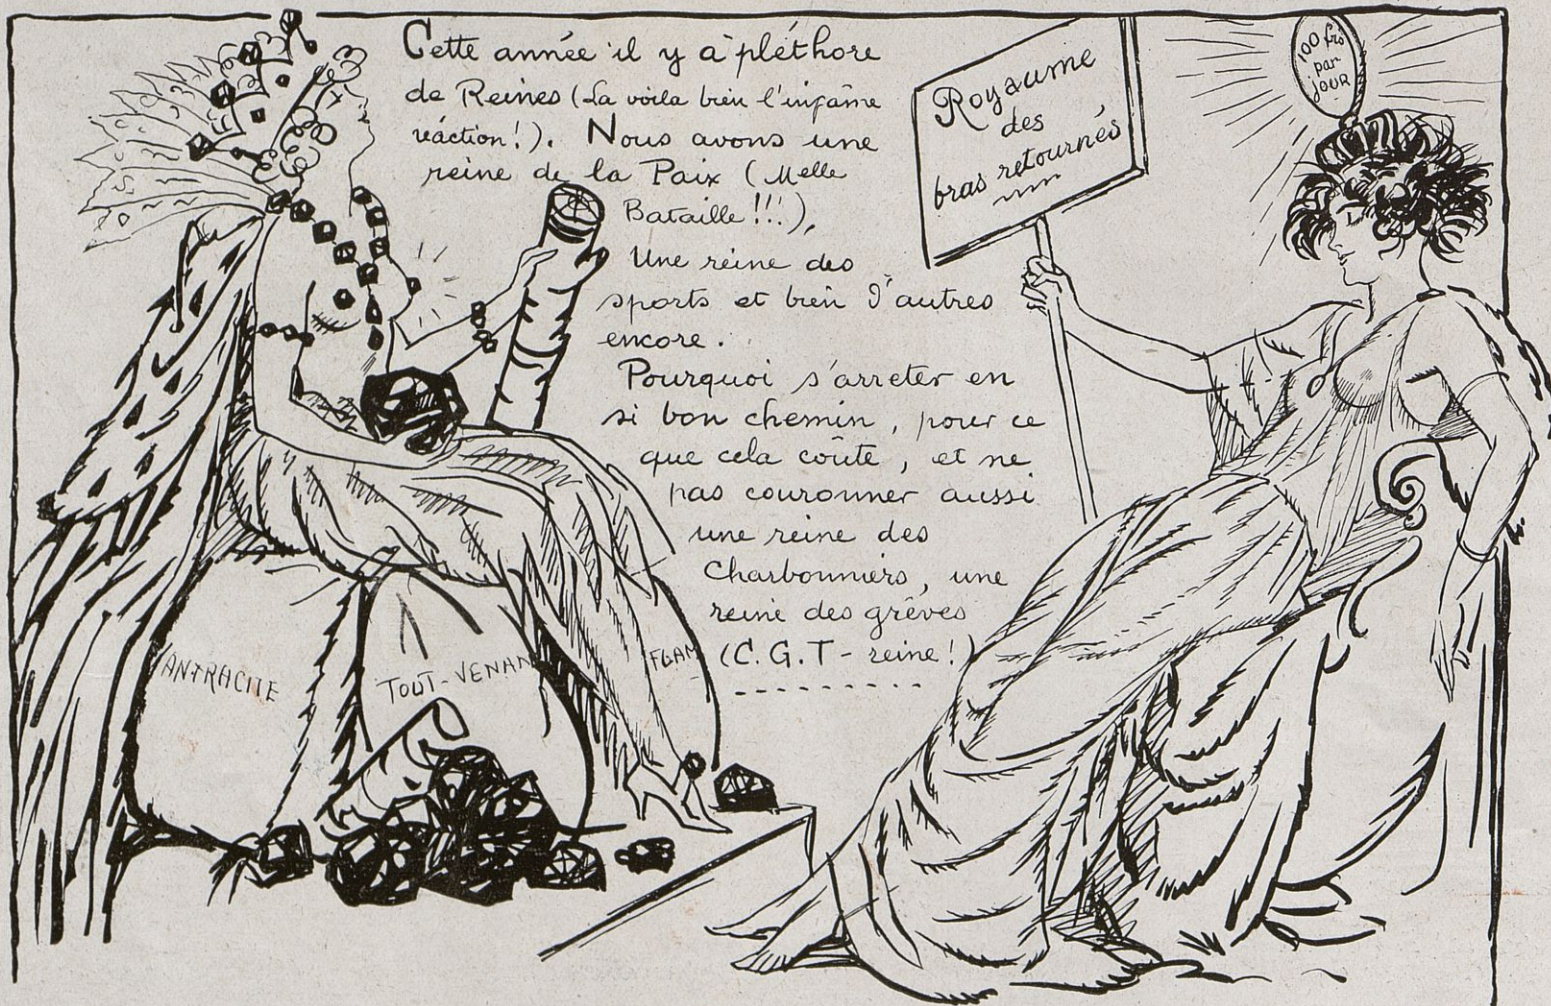 Cette année il y a pléthore
de Reines (La voila bien l'infâme
réaction!). Nous avons une
reine de la Paix (Melle
Bataille!!!),
Une reine des
sports et bien d'autres
encore.
Pourquoi s'arreter en
si bon chemin, pour ce
que cela coûte, et ne
pas couronner aussi
une reine des
Charbonniers, une
reine des grêves
(C.G.T - reine!)
Royaume
des
bras retournés
100 frs
par
JOUR
ANTRACITE
TOUT-VENAN
FLAM